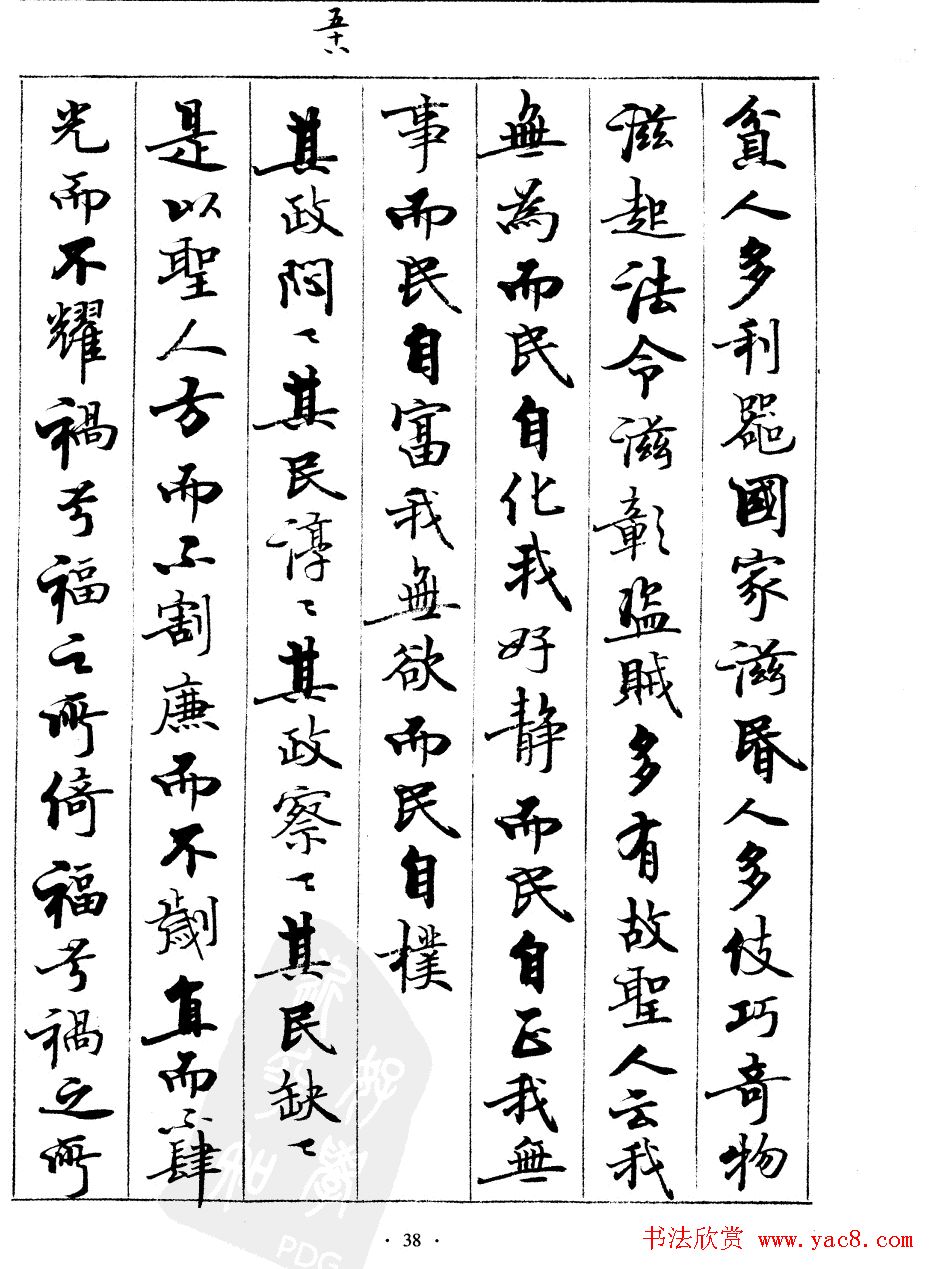 五十八
貧人多利器國家滋昬人多伎巧奇物
滋起法令滋彰盜賊多有故聖人云我
無為而民自化我好靜而民自正我無
事而民自富我無欲而民自樸
其政悶〻其民淳〻其政察〻其民缺〻
是以聖人方而不割廉而不劌直而不肆
光而不耀禍兮福之所倚福兮禍之所
· 38 ·
PDG
书法欣赏 www.yac8.com